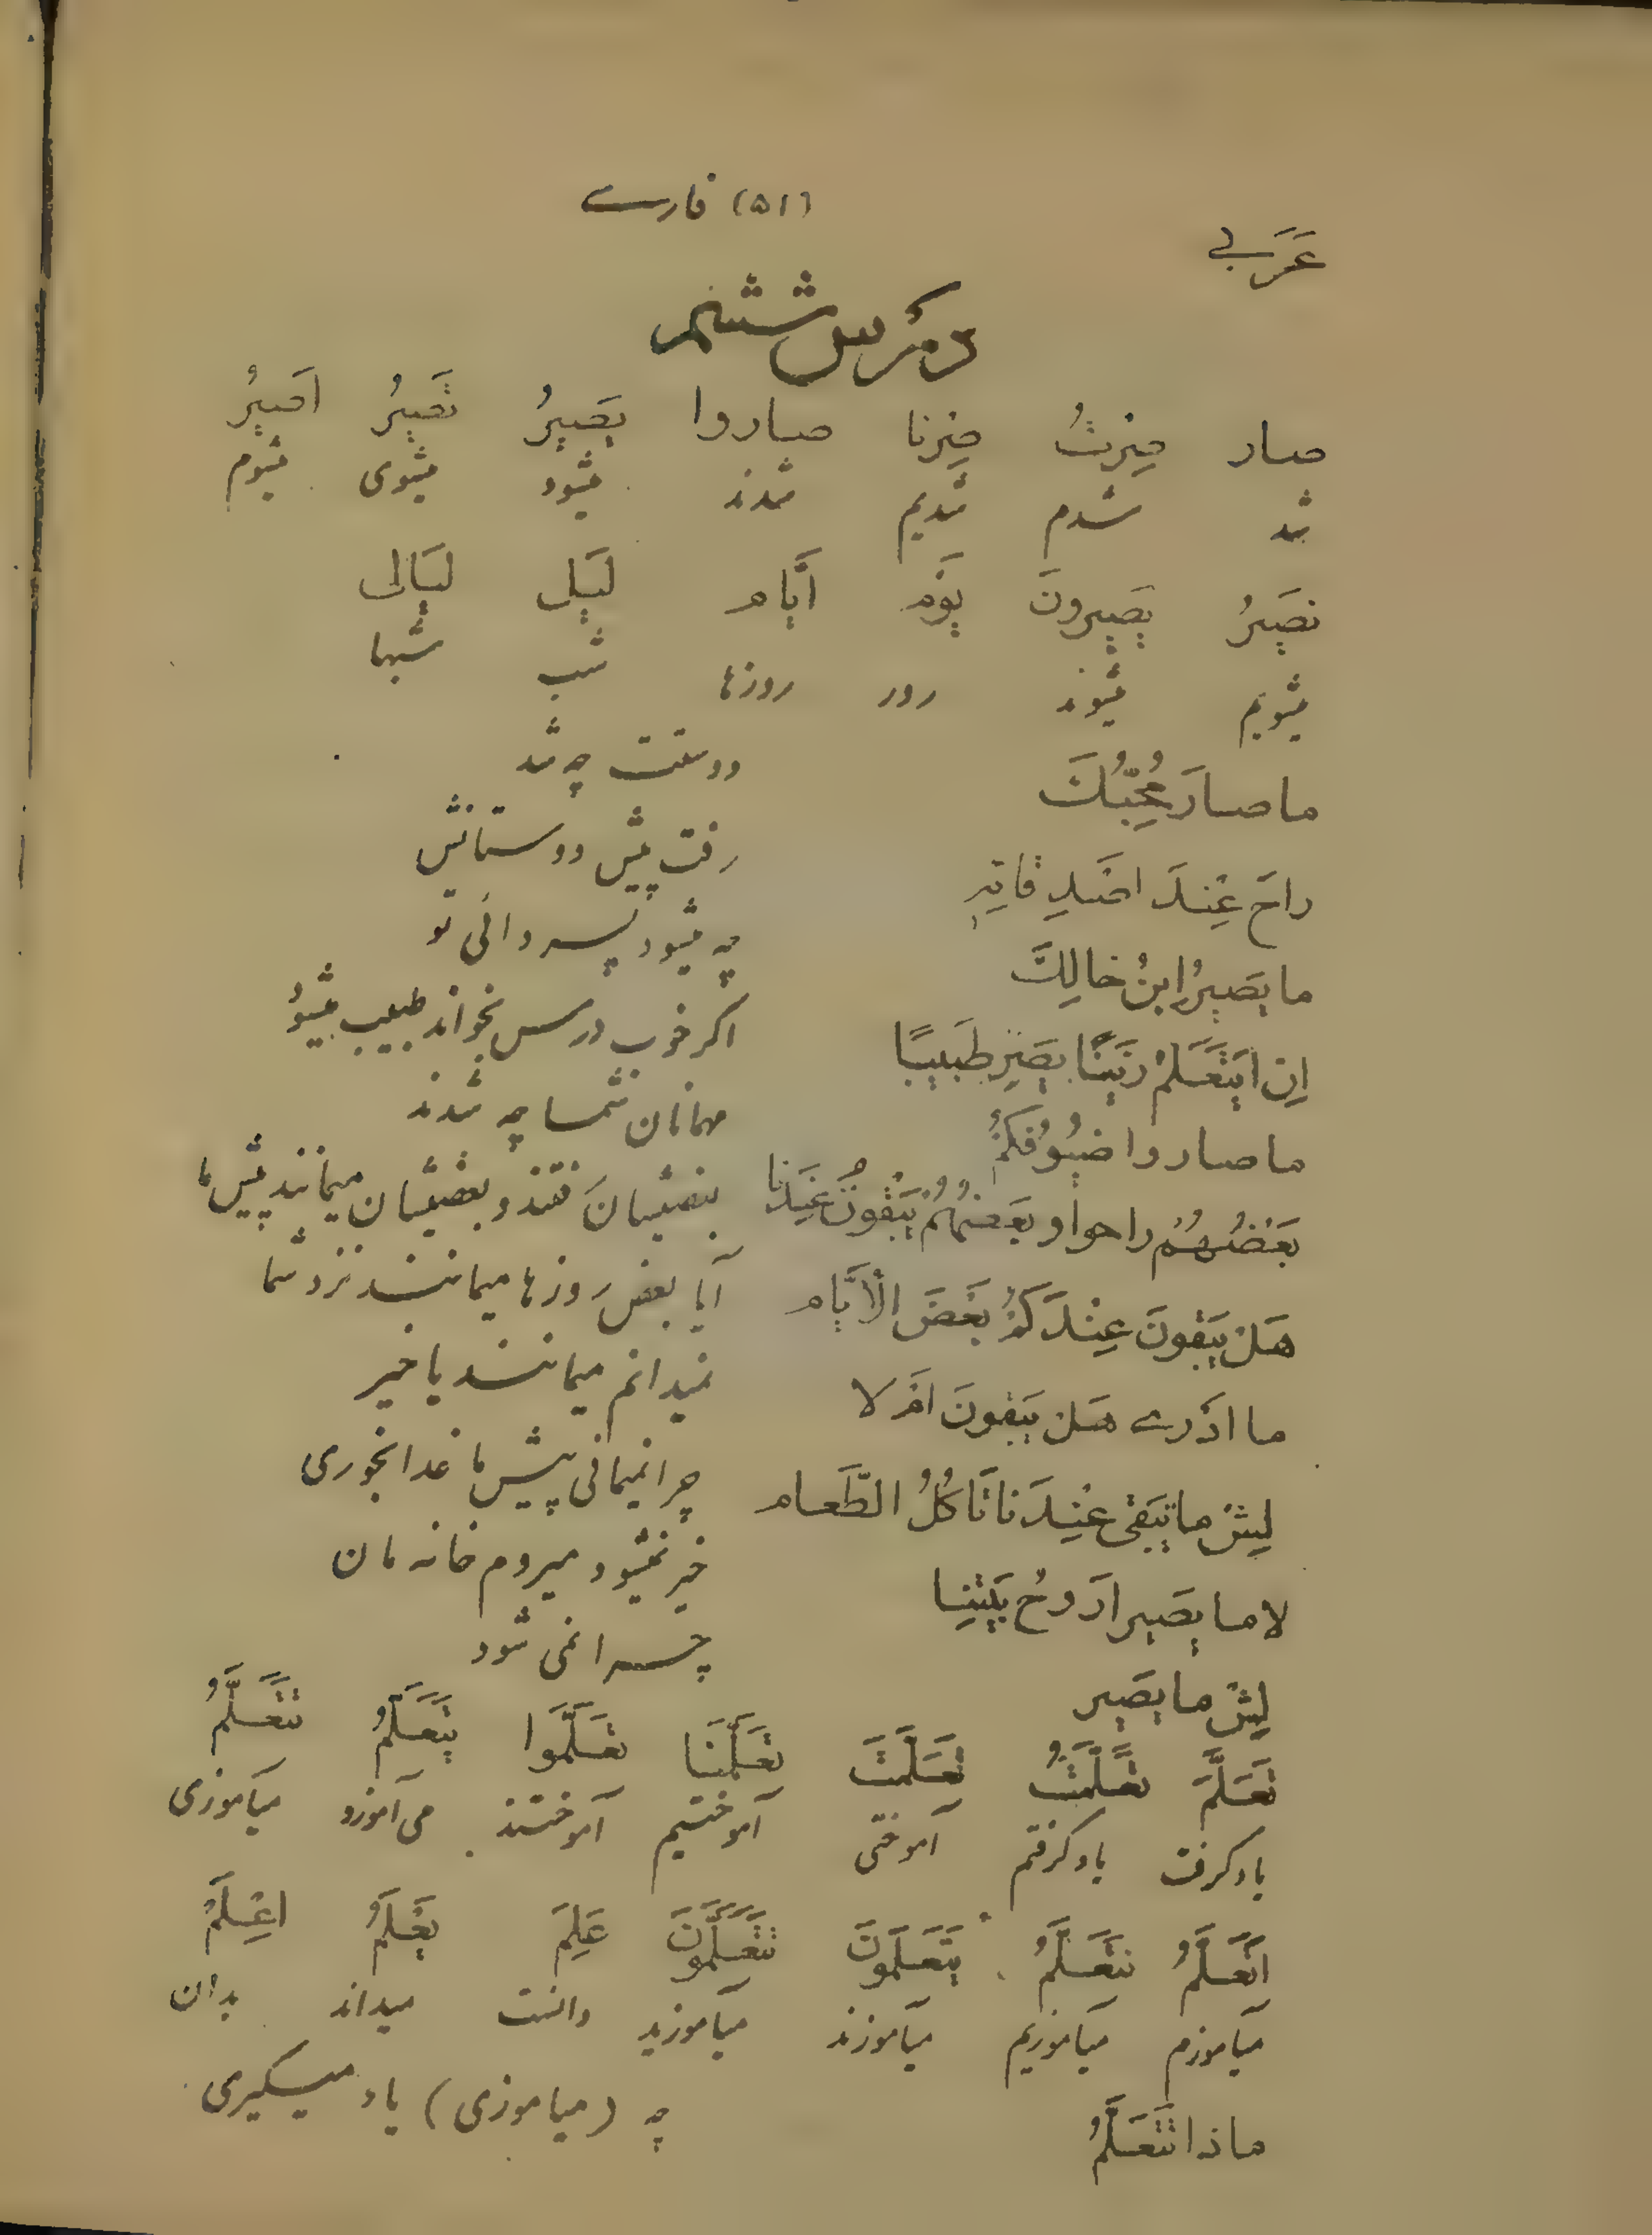 عَرَبی (۵۱) فارسی
درس ششم
صار صِرْتُ صِرْنا صاروا یَصیرُ تَصیرُ اَصیرُ
شد شدم شدیم شدند میشود میشوی میشوم
نَصیرُ یَصیرونَ یَوْم اَیّام لَیل لَیالی
میشویم میشوند روز روزها شب شبها
ما صارَ مُحِبُّكَ دوستت چه شد
راحَ عِندَ اَصْدِقائِهِ رفت پیش دوستانش
ما یَصیرُ ابنُ خالِكَ چه میشود پسر دائی تو
اِن یَتَعَلَّمْ زَیْنًا یَصیر طَبیبًا اگر خوب درس بخواند طبیب میشود
ما صاروا ضُیُوفُکُمْ مهمانان شما چه شدند
بَعْضُهُمْ راحوا و بَعْضُهُمْ یَبْقُونَ عِنْدَنا بعضیشان رفتند و بعضیشان میمانند پیش ما
هَل یَبْقونَ عِنْدَکُمْ بَعْضَ الْاَیّام آیا بعض روزها میمانند نزد شما
ما اَدْری هَل یَبْقونَ اَمْ لا نمیدانم میمانند یا خیر
لِیشْ ما تَبْقی عِنْدَنا تَاکُلُ الطَّعام چرا نمیمانی پیش ما غذا بخوری
لا ما یَصیر اَرُوحُ بَیْتِنا خیر نمیشود میروم خانه مان
لِیشْ ما یَصیر چرا نمی شود
تَعَلَّمَ تَعَلَّمْتُ تَعَلَّمْتَ تَعَلَّمْنَا تَعَلَّمُوا یَتَعَلَّمُ تَتَعَلَّمُ
یاد گرفت یاد گرفتم آموختی آموختیم آموختند می آموزد میآموزی
اَتَعَلَّمُ نَتَعَلَّمُ یَتَعَلَّمُونَ تَتَعَلَّمُونَ عَلِمَ یَعْلَمُ اِعْلَمْ
میآموزم میآموزیم میآموزند میآموزید دانست میداند بدان
ماذا تَتَعَلَّمُ چه (میاموزی) یاد میگیری